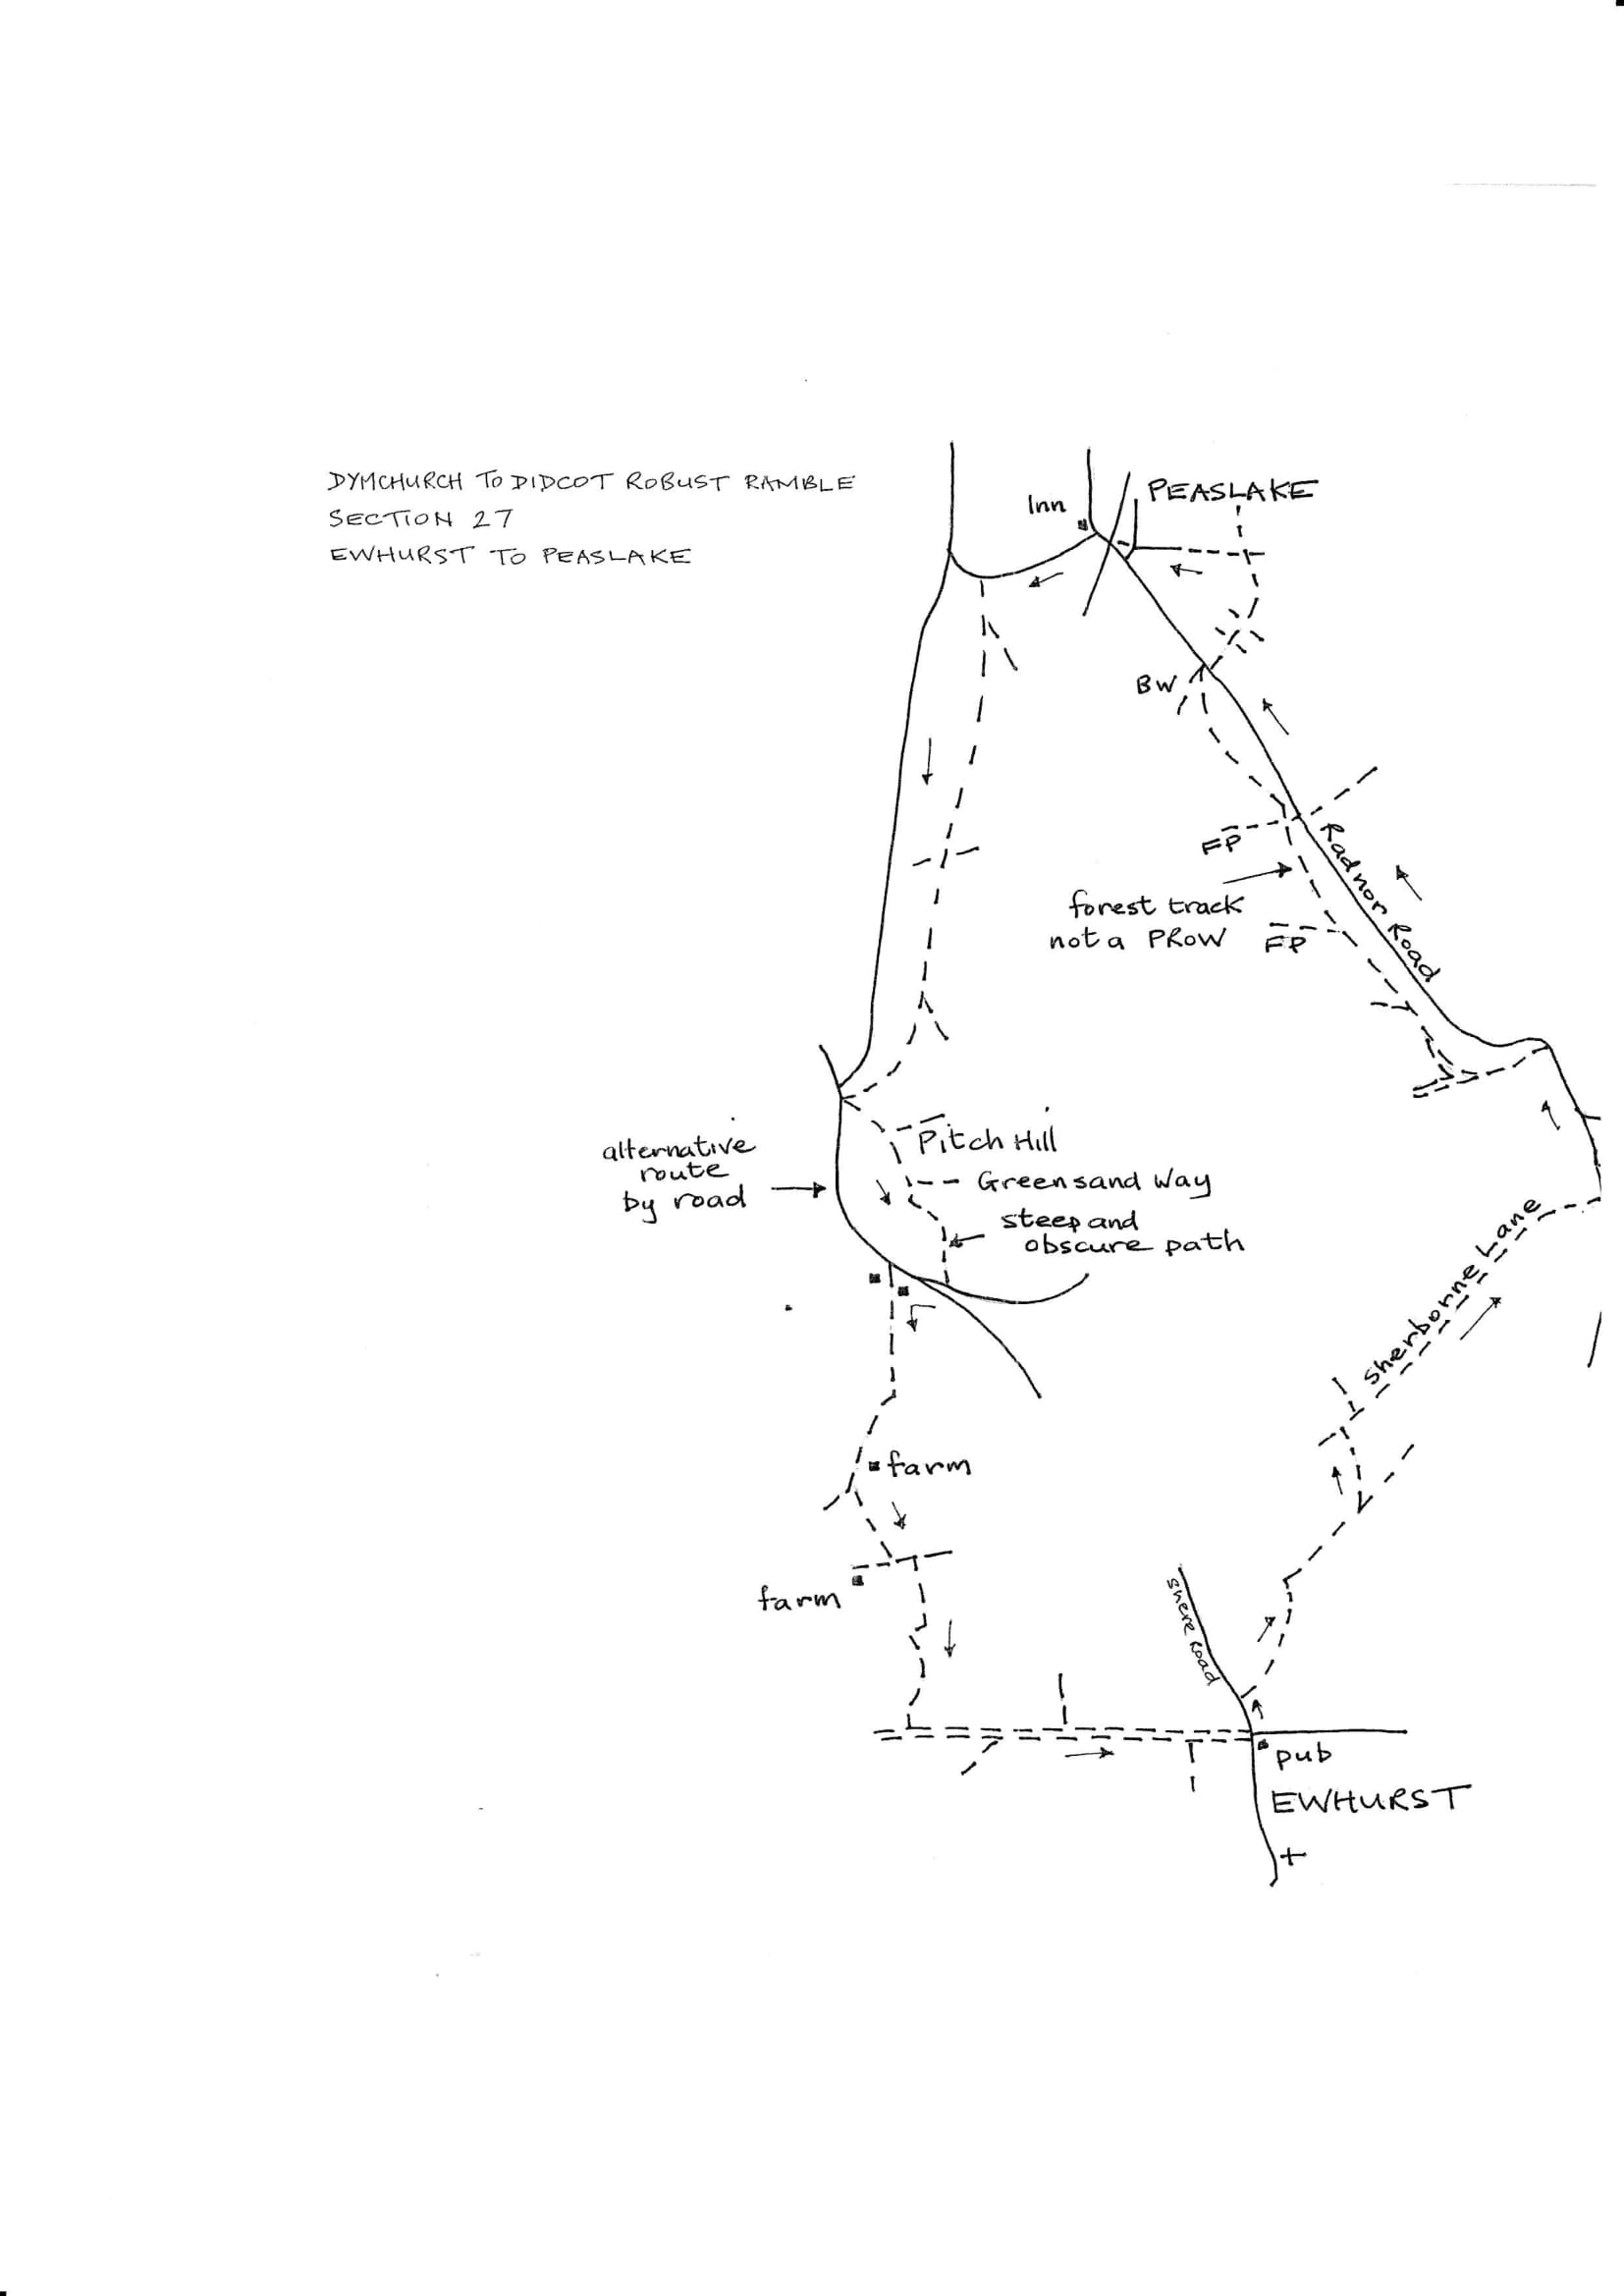 DYMCHURCH TO DIDCOT ROBUST RAMBLE
SECTION 27
EWHURST TO PEASLAKE
Inn
PEASLAKE
BW
FP
Radnor Road
forest track
not a PROW
FP
Pitch Hill
alternative
route
by road
Greensand Way
steep and
obscure path
Sherborne Lane
farm
farm
Shere Road
pub
EWHURST